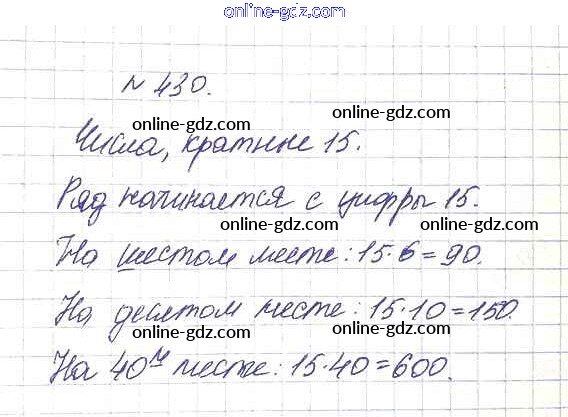 online-gdz.com
№ 430.
online-gdz.com online-gdz.com
Числа, кратные 15.
online-gdz.com
Ряд начинается с цифры 15.
online-gdz.com online-gdz.com
На шестом месте: 15·6=90.
online-gdz.com
На десятом месте: 15·10=150.
online-gdz.com online-gdz.com
На 40м месте: 15·40=600.